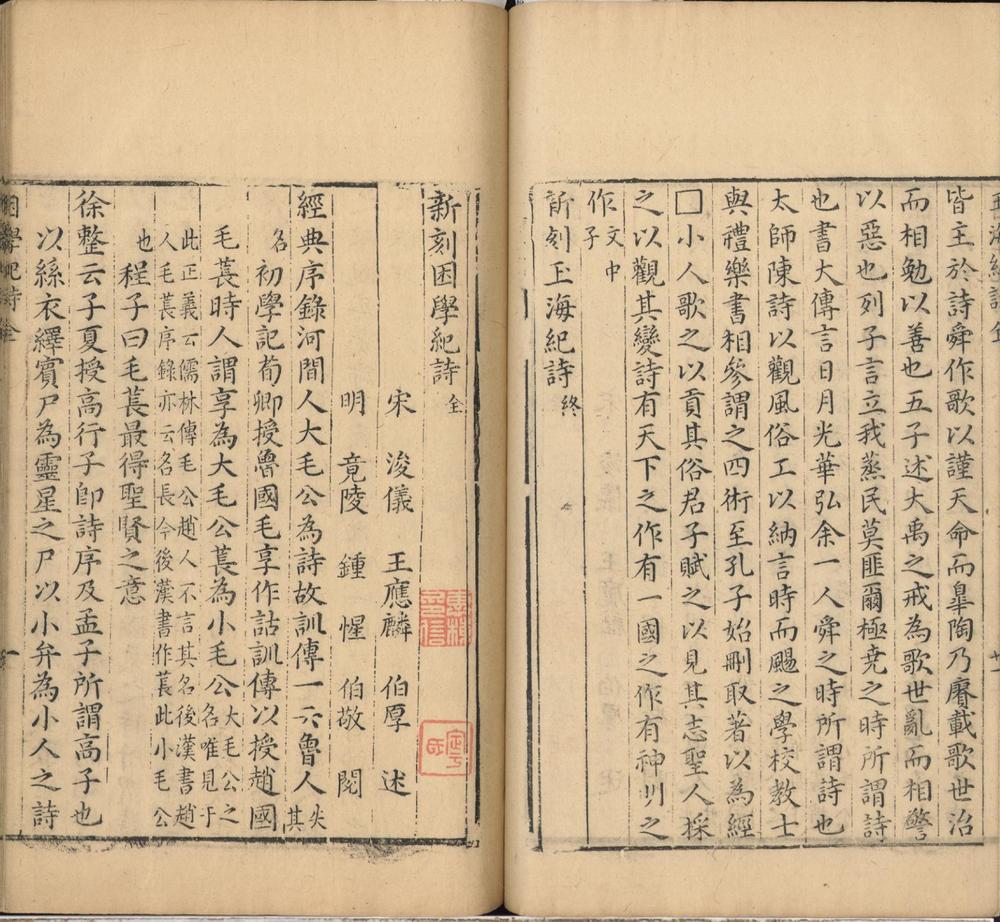 皆主於詩舜作歌以謹天命而皐陶乃賡載歌世治
而相勉以善也五子述大禹之戒為歌世亂而相警
以惡也列子言立我蒸民莫匪爾極堯之時所謂詩
也書大傳言日月光華弘余一人舜之時所謂詩也
太師陳詩以觀風俗工以納言時而颺之學校教士
與禮樂書相參謂之四術至孔子始刪取著以為經
□小人歌之以貢其俗君子賦之以見其志聖人採
之以觀其變詩有天下之作有一國之作有神明之
作文中
子
新刻玉海紀詩終
新刻困學紀詩全
宋 浚儀 王應麟 伯厚 述
明 竟陵 鍾惺 伯敬 閱
經典序錄河間人大毛公為詩故訓傳一云魯人失其
名初學記荀卿授魯國毛享作詁訓傳以授趙國
毛萇時人謂享為大毛公萇為小毛公大毛公之
名唯見于
此正義云儒林傳毛公趙人不言其名後漢書趙
人毛萇序錄亦云名長今後漢書作萇此小毛公
也程子曰毛萇最得聖賢之意
徐整云子夏授高行子卽詩序及孟子所謂高子也
以絲衣繹賓尸為靈星之尸以小弁為小人之詩